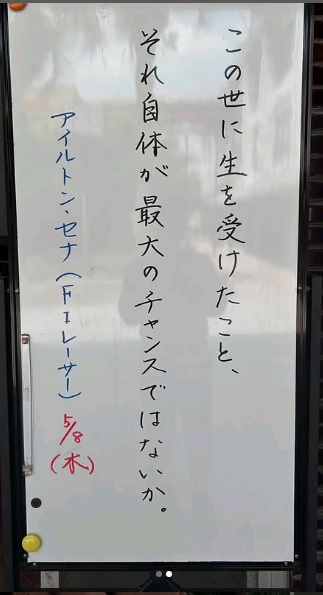 この世に生を受けたこと、
それ自体が最大のチャンスではないか。
アイルトン・セナ(F1レーサー)
5/8
(木)